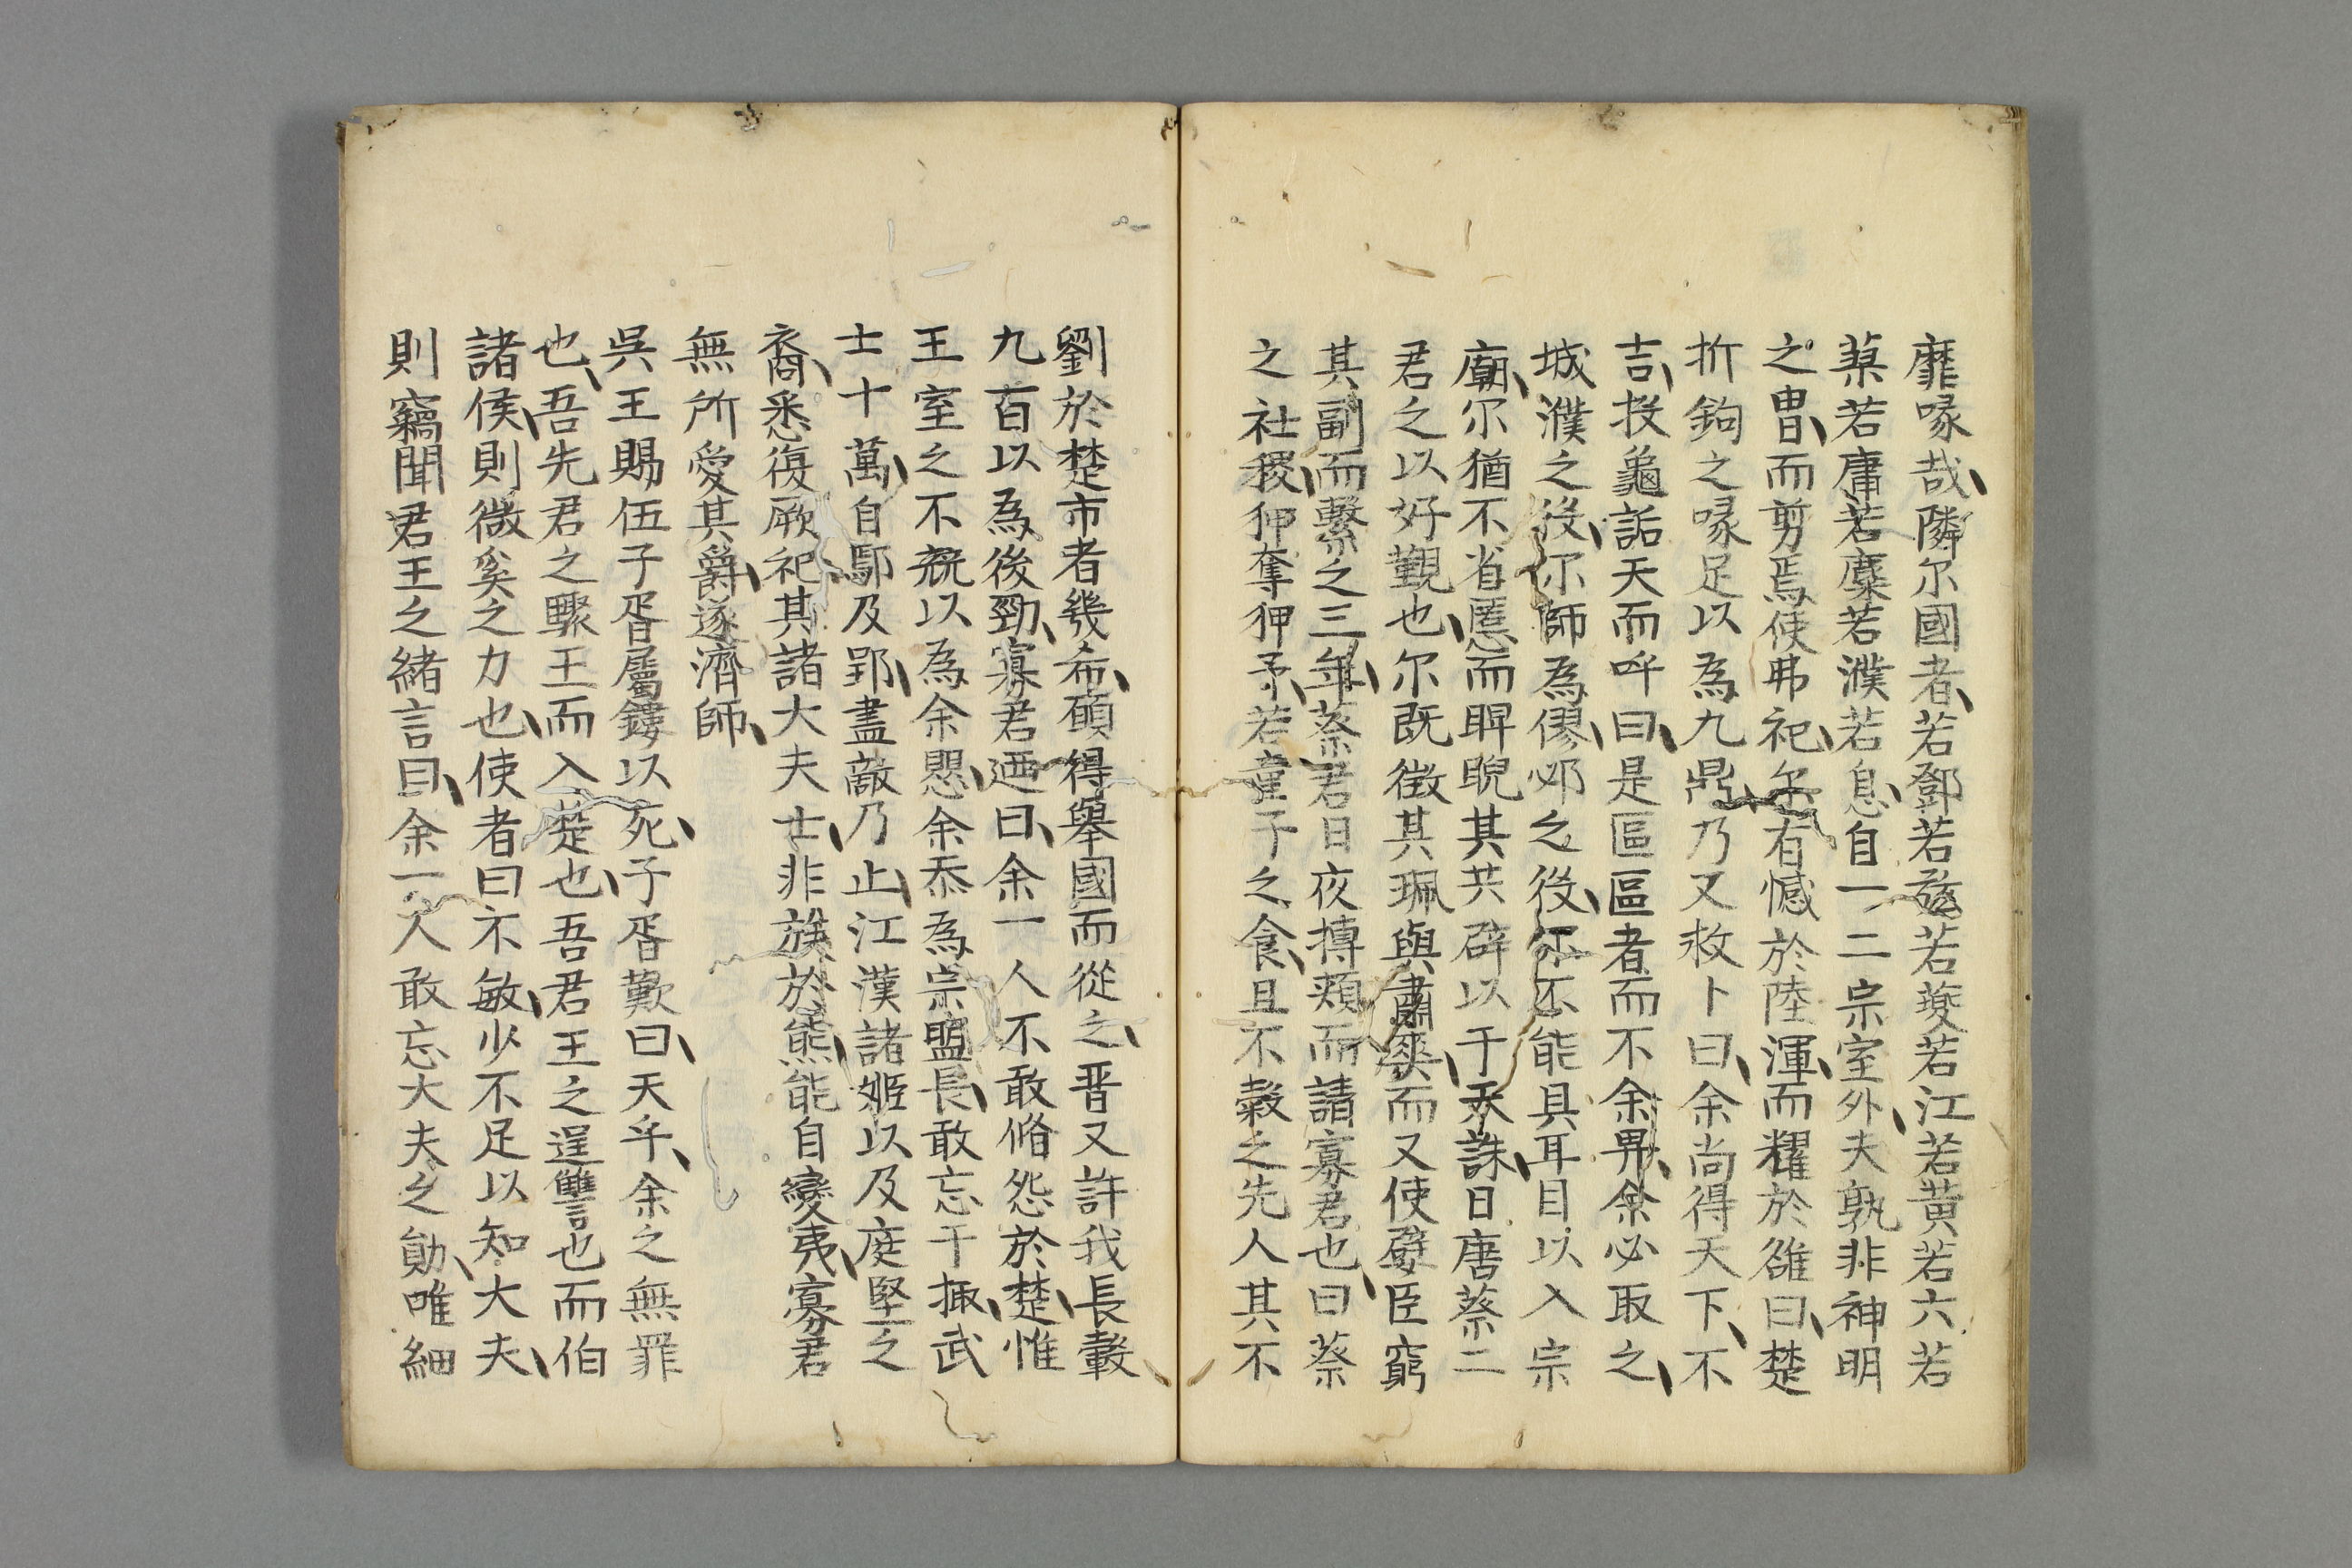 靡喙哉隣尔國者若鄧若弦若夔若江若黄若六若
蓼若庸若麋若濮若息自一二宗室外夫孰非神明
之胄而剪焉使弗祀年有憾於陸渾而糴於雒曰楚
折鉤之喙足以為九鼎乃又救卜曰余尚得天下不
吉投龜詬天而呼曰是區區者而不余畀余必取之
城濮之役尔師為僇邲之役尔不能具耳目以入宗
廟尔猶不省慝而睥睨其共辟以于天誅日唐蔡二
君之以好覲也尔既徵其珮與肅爽而又使嬖臣窮
其副而繫之三年蔡君日夜摶頰而請寡君也曰蔡
之社稷狎奪狎予若童子之食且不穀之先人其不
劉於楚市者幾希碩得舉國而從之晋又許我長轂
九百以為後勁寡君迺曰余一人不敢脩怨於楚惟
王室之不競以為余愳余忝為宗盟長敢忘干掫武
士十萬自鄢及郢盡敵乃止江漢諸姬以及庭堅之
裔悉復厥祀其諸大夫士非族於熊能自變夷寡君
無所愛其爵遂濟師
吳王賜伍子胥屬鏤以死子胥歎曰天乎余之無罪
也吾先君之驟王而入楚也吾君王之逞讐也而伯
諸侯則微奚之力也使者曰不敏少不足以知大夫
則竊聞君王之緒言曰余一人敢忘大夫之勛唯細